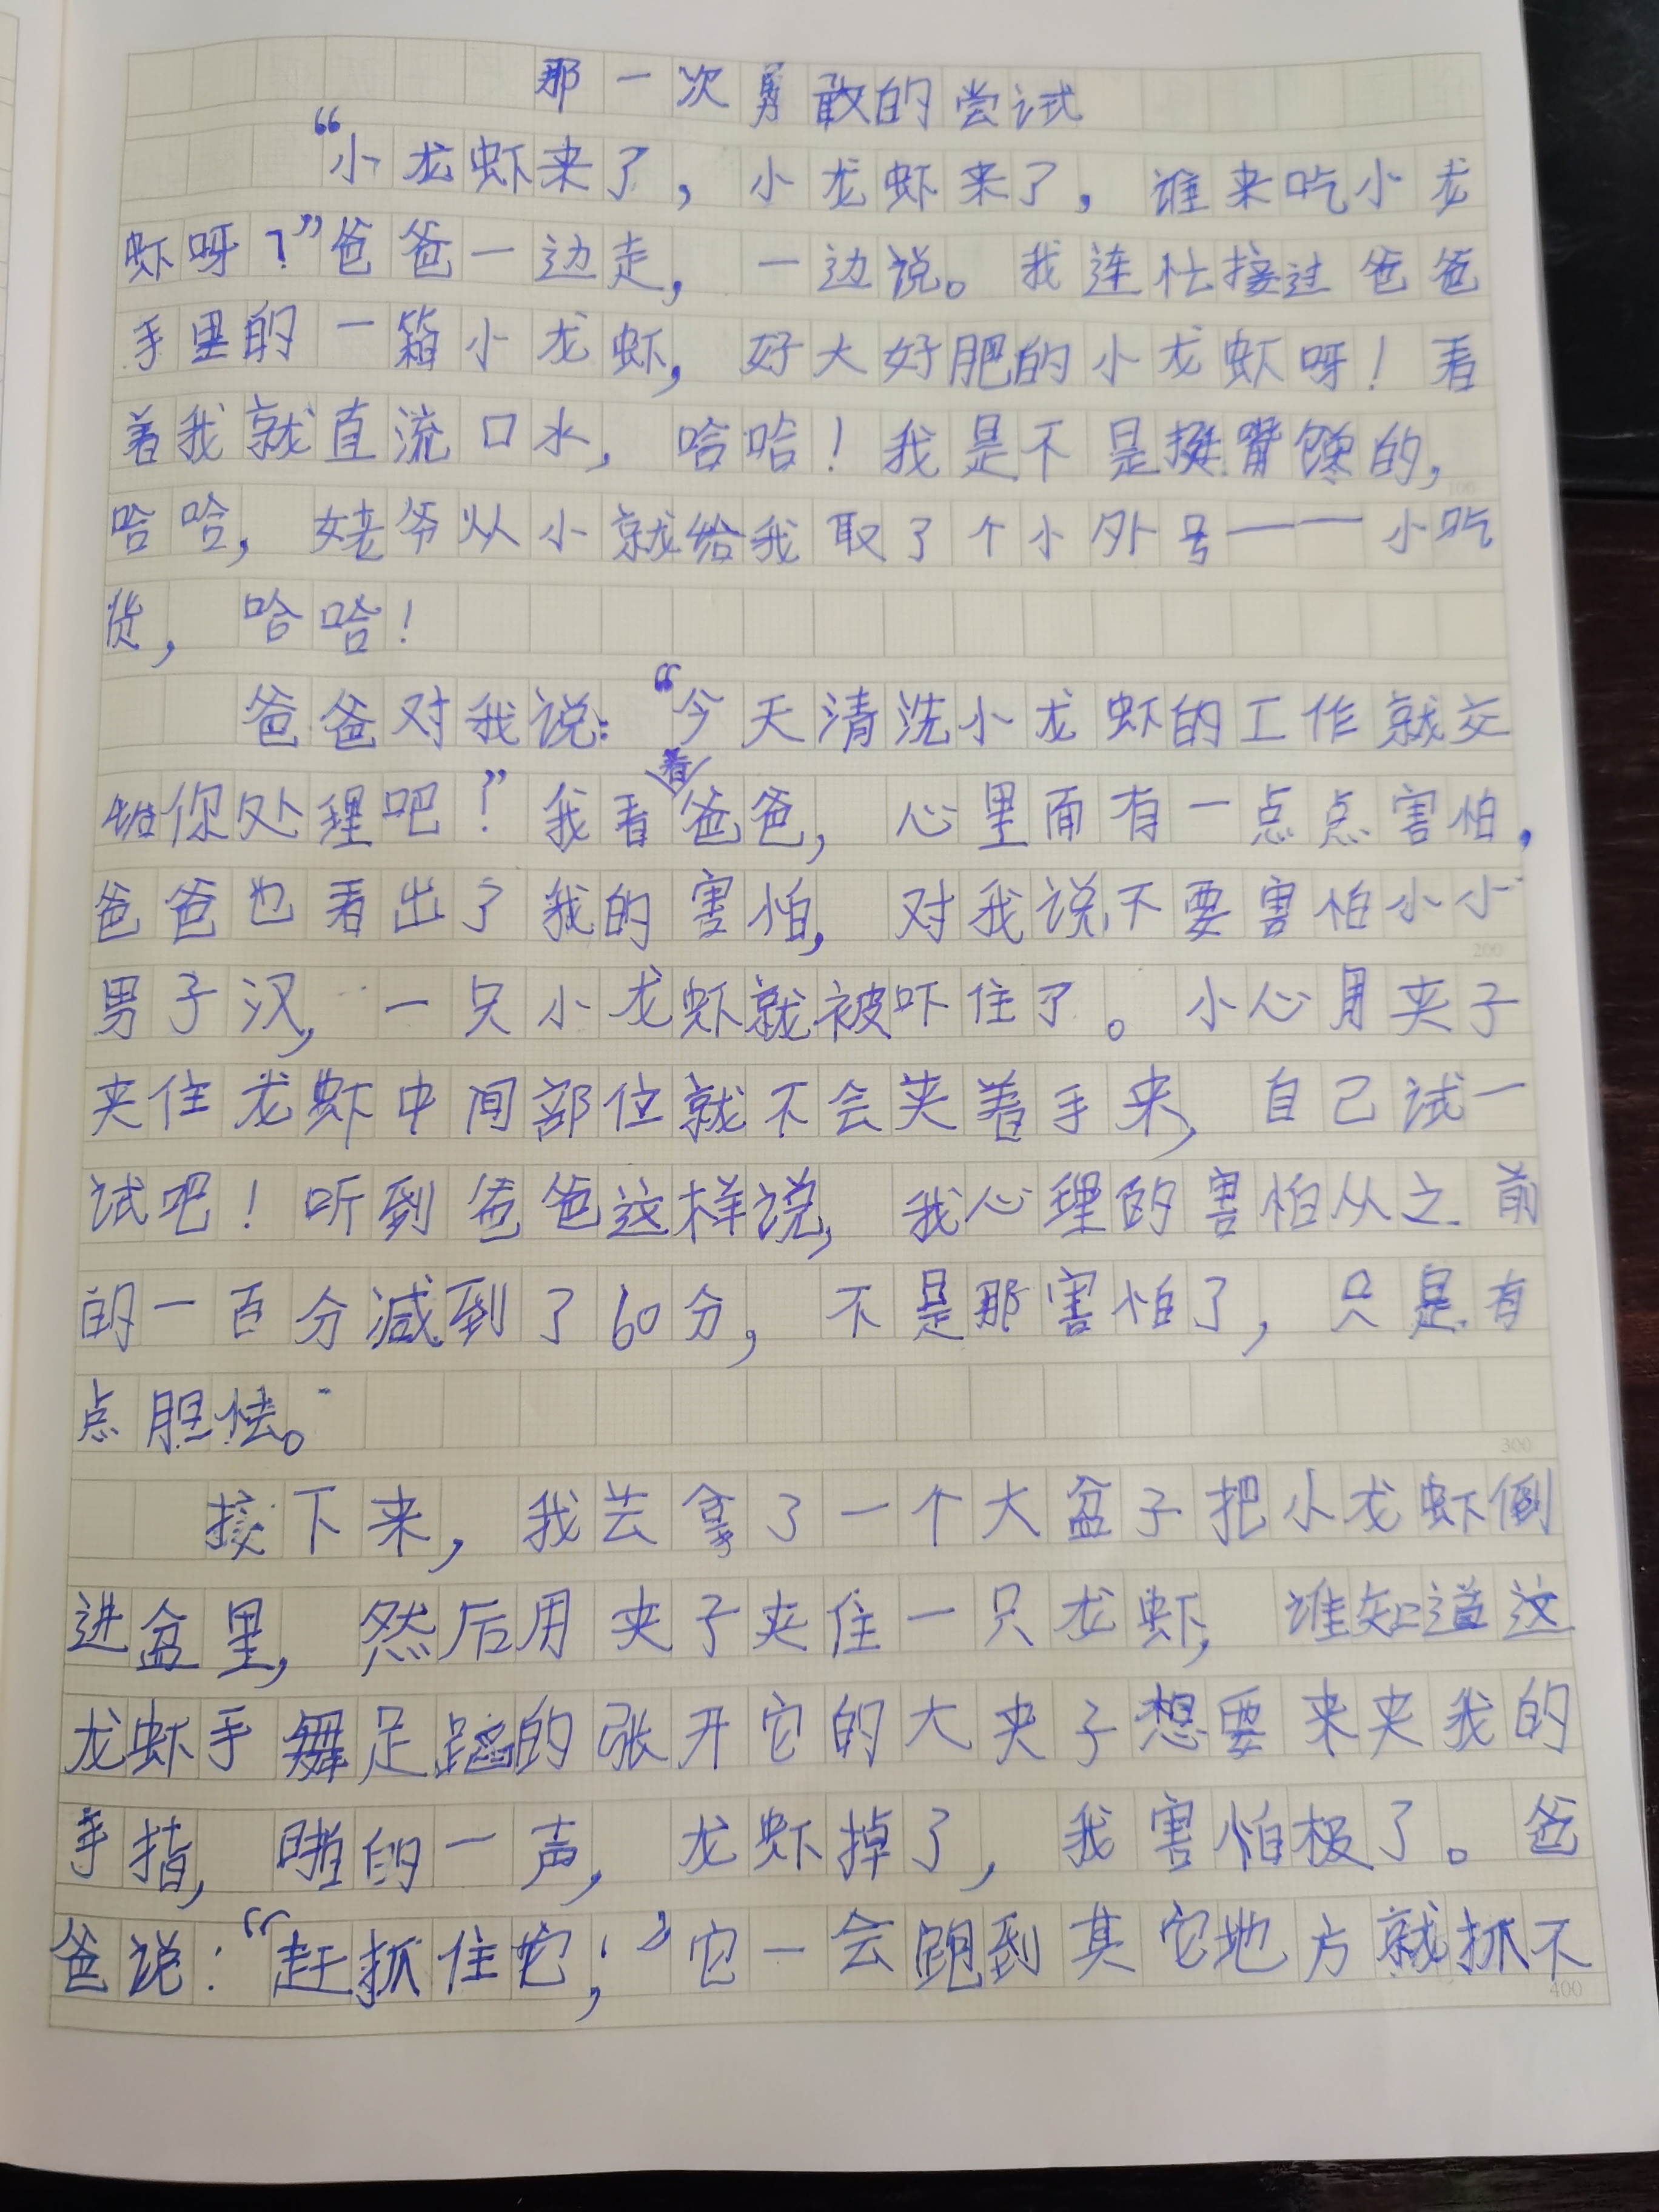 那一次勇敢的尝试
“小龙虾来了，小龙虾来了，谁来吃小龙
虾呀？”爸爸一边走，一边说。我连忙接过爸爸
手里的一箱小龙虾，好大好肥的小龙虾呀！看
着我就直流口水，哈哈！我是不是挺嘴馋的，
哈哈，姥爷从小就给我取了个小外号——小吃
货，哈哈！
爸爸对我说：“今天清洗小龙虾的工作就交
给你处理吧！”我看着爸爸，心里面有一点点害怕，
爸爸也看出了我的害怕，对我说不要害怕小小
男子汉，一只小龙虾就被吓住了。小心用夹子
夹住龙虾中间部位就不会夹着手来，自己试一
试吧！听到爸爸这样说，我心理的害怕从之前
的一百分减到了60分，不是那害怕了，只是有
点胆怯。
接下来，我去拿了一个大盆子把小龙虾倒
进盆里，然后用夹子夹住一只龙虾，谁知道这
龙虾手舞足蹈的张开它的大夹子想要来夹我的
手指，啪的一声，龙虾掉了，我害怕极了。爸
爸说：“赶抓住它；”它一会跑到其它地方就抓不
100
200
300
400